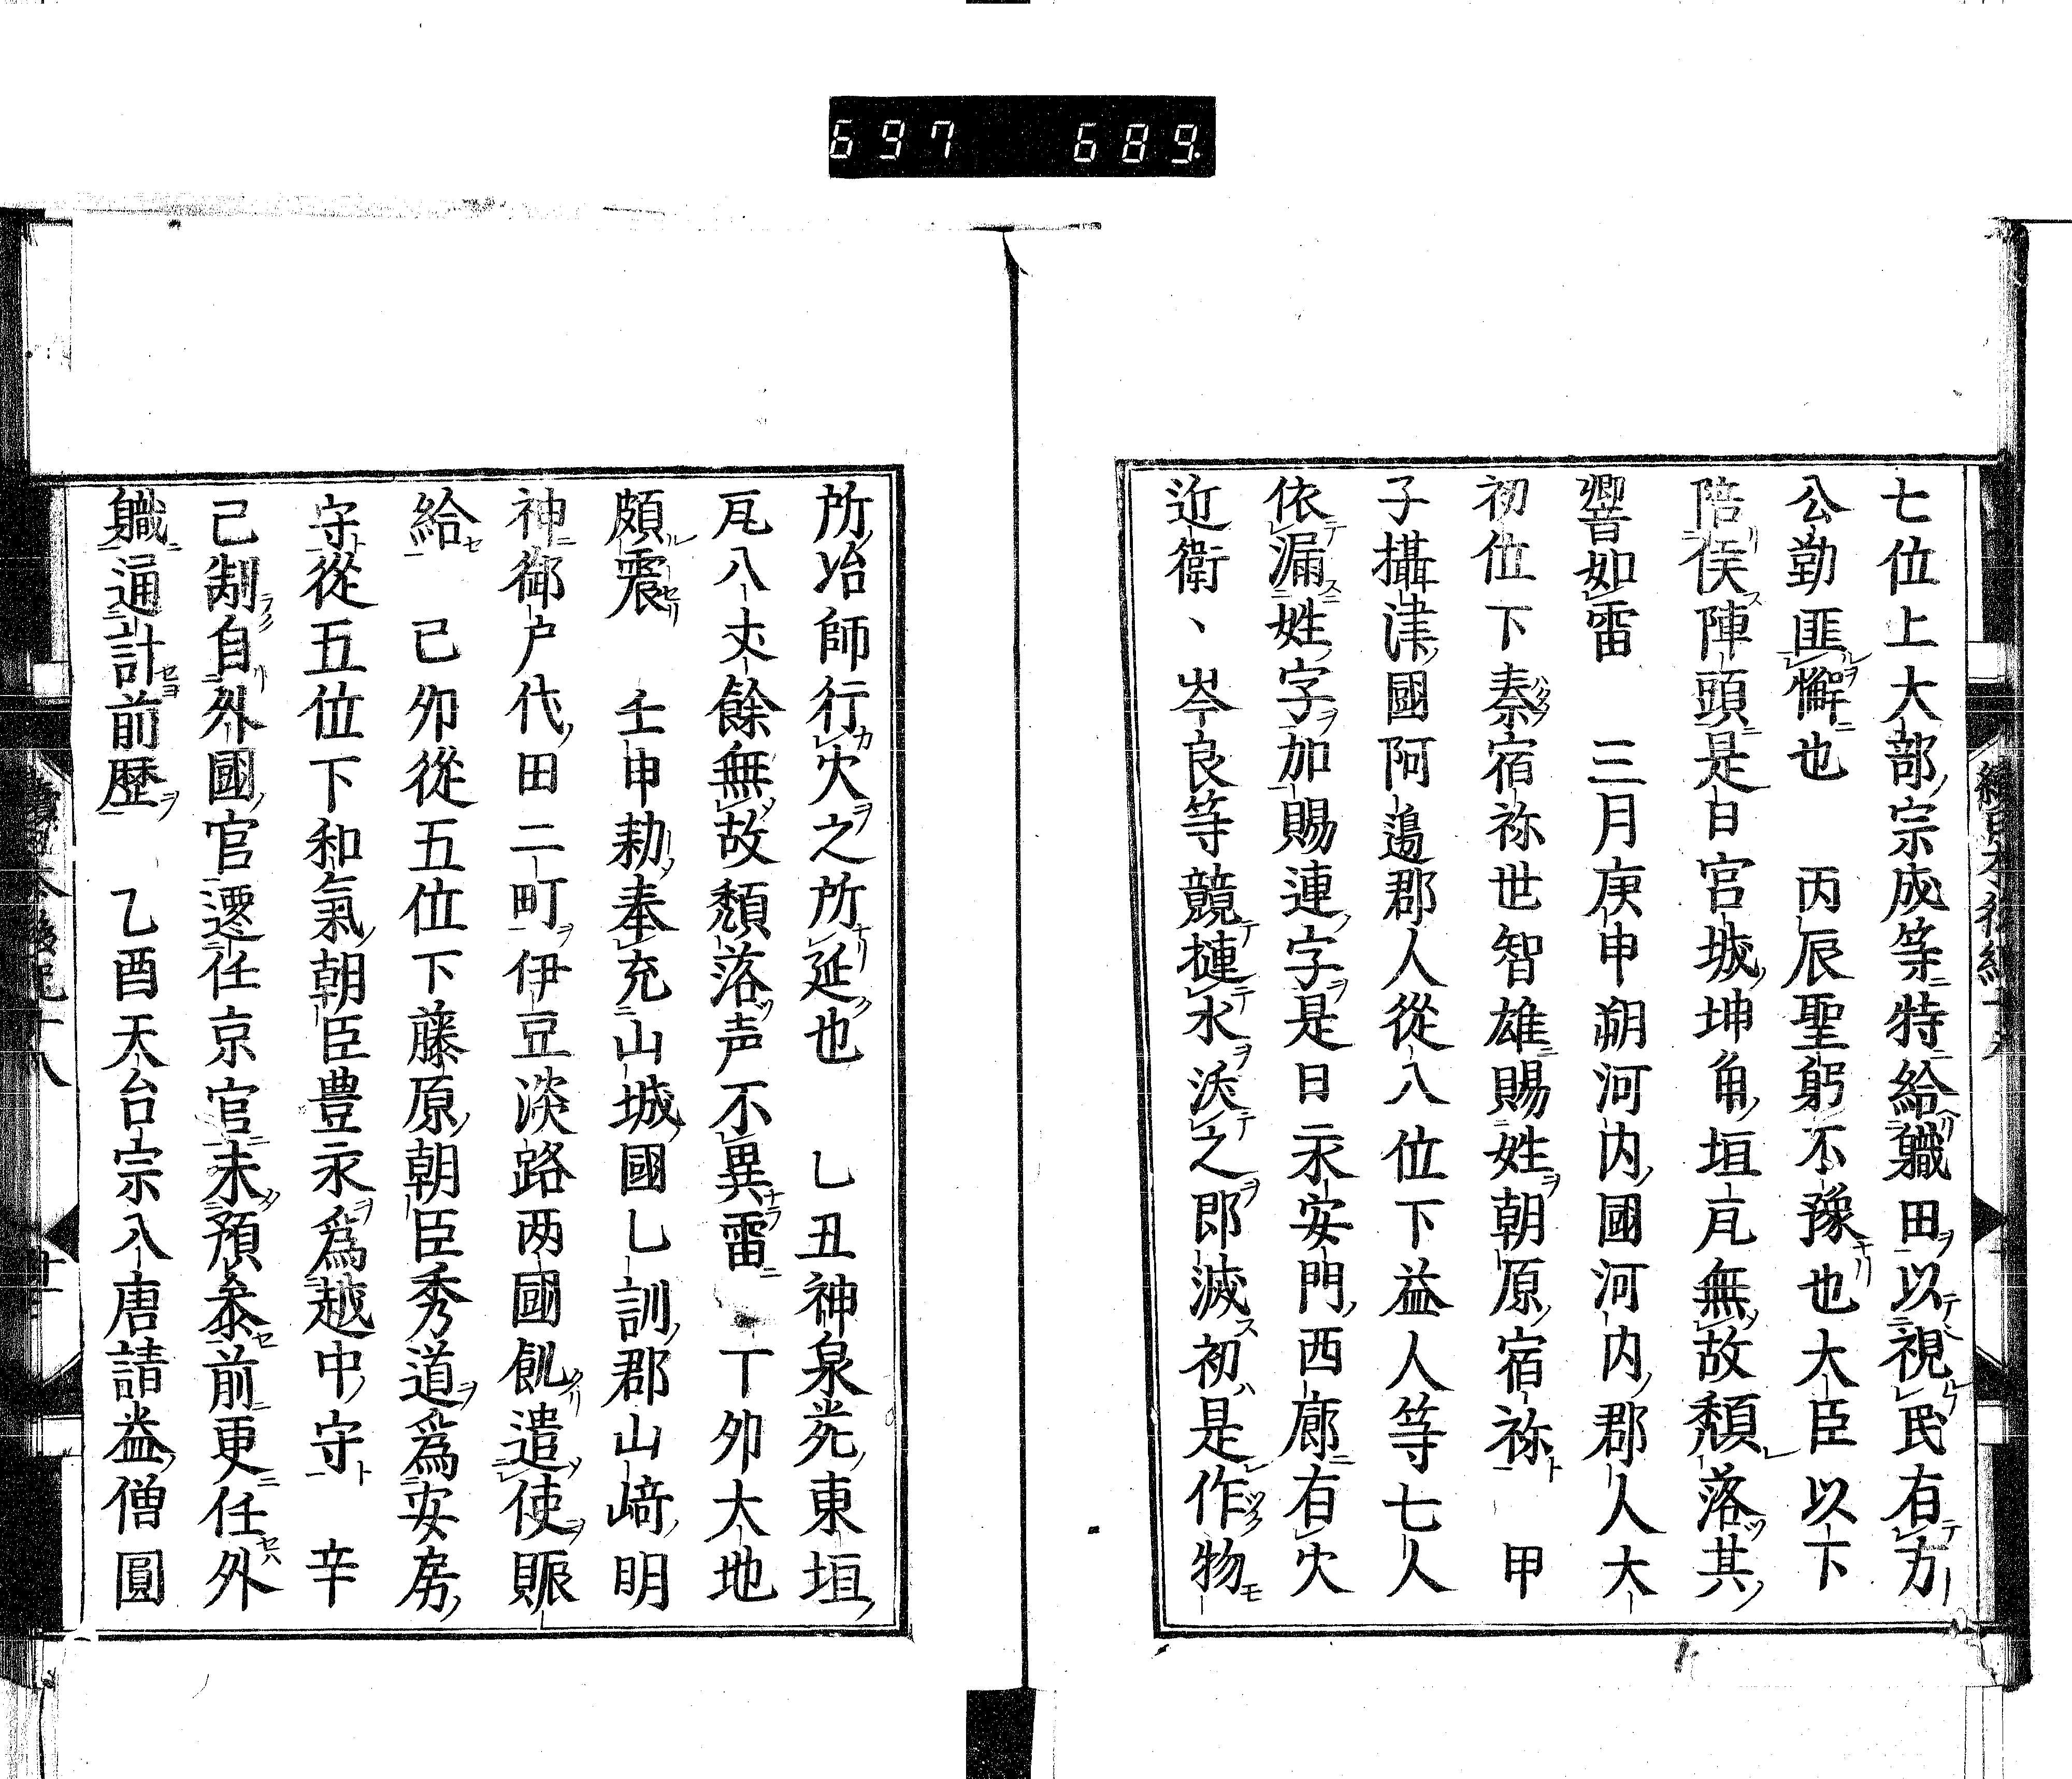 697 689
七位上大部宗成等特給軄田以視民有力
公勤匪懈也　丙辰聖躬不豫也大臣以下
陪侯陣頭是日宮城坤角垣瓦無故頽落其
響如雷　三月庚申朔河内國河内郡人大
初位下秦宿祢世智雄賜姓朝原宿祢　甲
子攝津國阿邉郡人從八位下益人等七人
依漏姓字加賜連字是日永安門西廊有火
近衛、岑良等競揵水沃之即滅初是作物
所冶師行火之所延也　乚丑神泉苑東垣
瓦八丈餘無故頽落声不異雷　丁夘大地
頗震　壬申勅奉充山城國乚訓郡山﨑明
神御戸代田二町伊豆淡路两國飢遣使賑
給　己夘從五位下藤原朝臣秀道爲安房
守從五位下和氣朝臣豊永爲越中守　辛
己制自外國官遷任京官未預叅前更任外
軄通計前歴　乙酉天台宗入唐請益僧圓